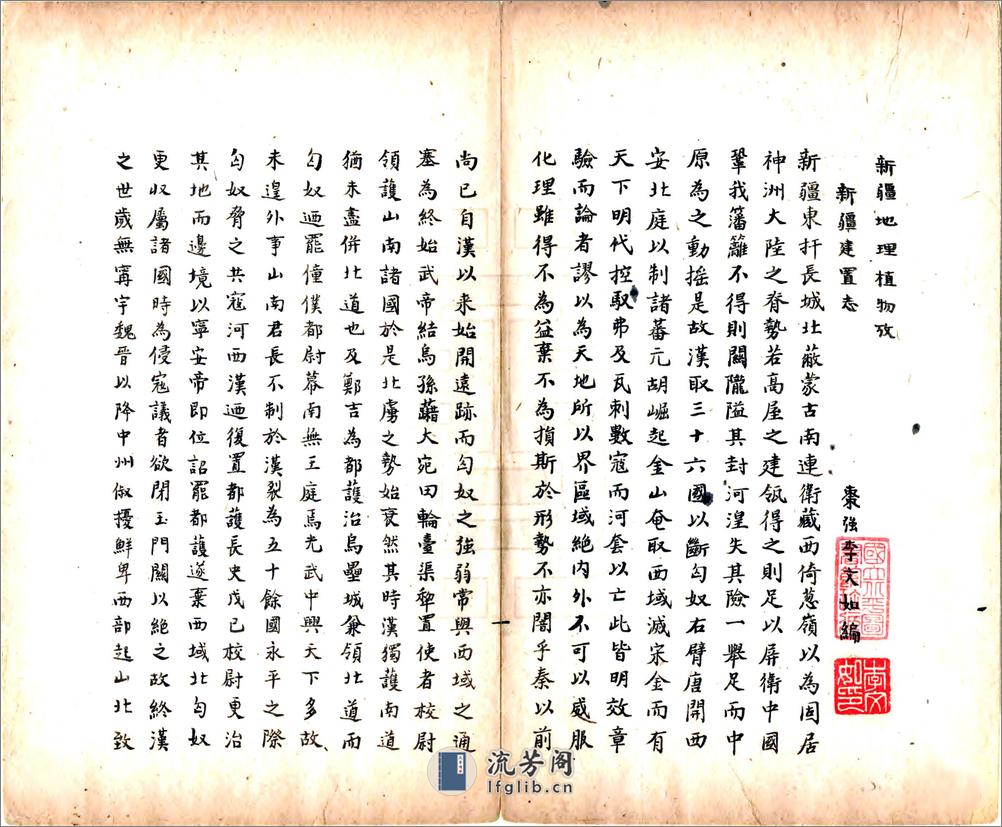 新疆地理植物攷
新疆建置志
棗強李文如編
新疆東扞長城北蔽蒙古南連衛藏西倚蔥嶺以為固居
神洲大陸之脊勢若高屋之建瓴得之則足以屏衛中國
鞏我籓籬不得則關隴隘其封河湟失其險一舉足而中
原為之動搖是故漢取三十六國以斷匈奴右臂唐開西
安北庭以制諸蕃元胡崛起金山奄取西域滅宋金而有
天下明代控馭弗及瓦刺數寇而河套以亡此皆明效章
驗而論者謬以為天地所以界區域絶內外不可以威服
化理雖得不為益棄不為損斯於形勢不亦闇乎秦以前
尚已自漢以来始開遠跡而匈奴之強弱常與西域之通
塞為終始武帝結烏孫藉大宛田輪臺渠犂置使者校尉
領護山南諸國於是北虜之勢始衰然其時漢獨護南道
猶未盡併北道也及鄭吉為都護治烏壘城兼領北道而
匈奴迺罷僮僕都尉幕南無王庭焉光武中興天下多故
未遑外事山南君長不制於漢裂為五十餘國永平之際
匈奴脅之共寇河西漢迺復置都護長史戊己校尉更治
其地而邊境以寧安帝即位詔罷都護遂棄西域北匈奴
更收屬諸國時為侵寇議者欲閉玉門關以絶之故終漢
之世歲無寗宇魏晉以降中州俶擾鮮卑西部起山北致
李文如印
流芳阁
lfglib.cn